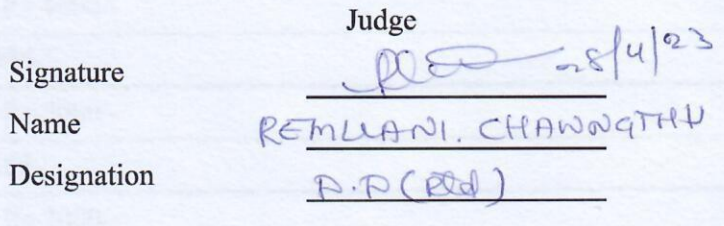 Judge
Signature 28/4/23
Name REMLLIANI. CHAWNGTHU
Designation D.D (Rtd)